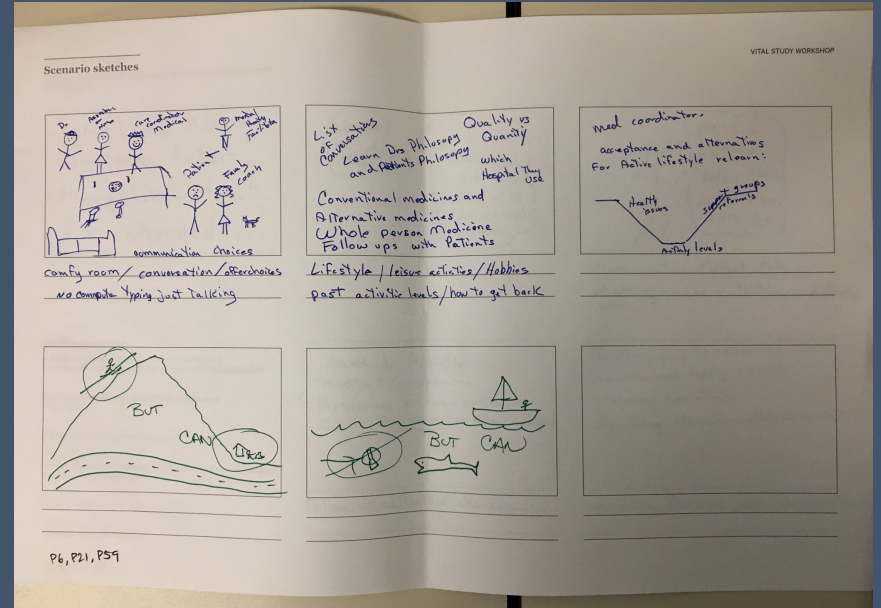 Scenario sketches
VITAL STUDY WORKSHOP
Dr
Care coordinator
Medical
mental
Health
Patient
Family
coach
communication choices
comfy room / conversation / offerchoices
No computer Typing just Talking
List
of
Conversations
Quality vs
Learn Drs Philosopy
and Patients Philosophy
which
Hospital They
use
Conventional medicines and
Alternative medicines
Whole person Medicine
Follow ups with Patients
Lifestyle / leisure activities / Hobbies
past activitie levels / how to get back
med coordinator.
acceptance and alternatives
For Active lifestyle relearn:
Health
issues
support + groups
referrals
Activity levels
BUT
CAN
BUT CAN
P6, P21, P59